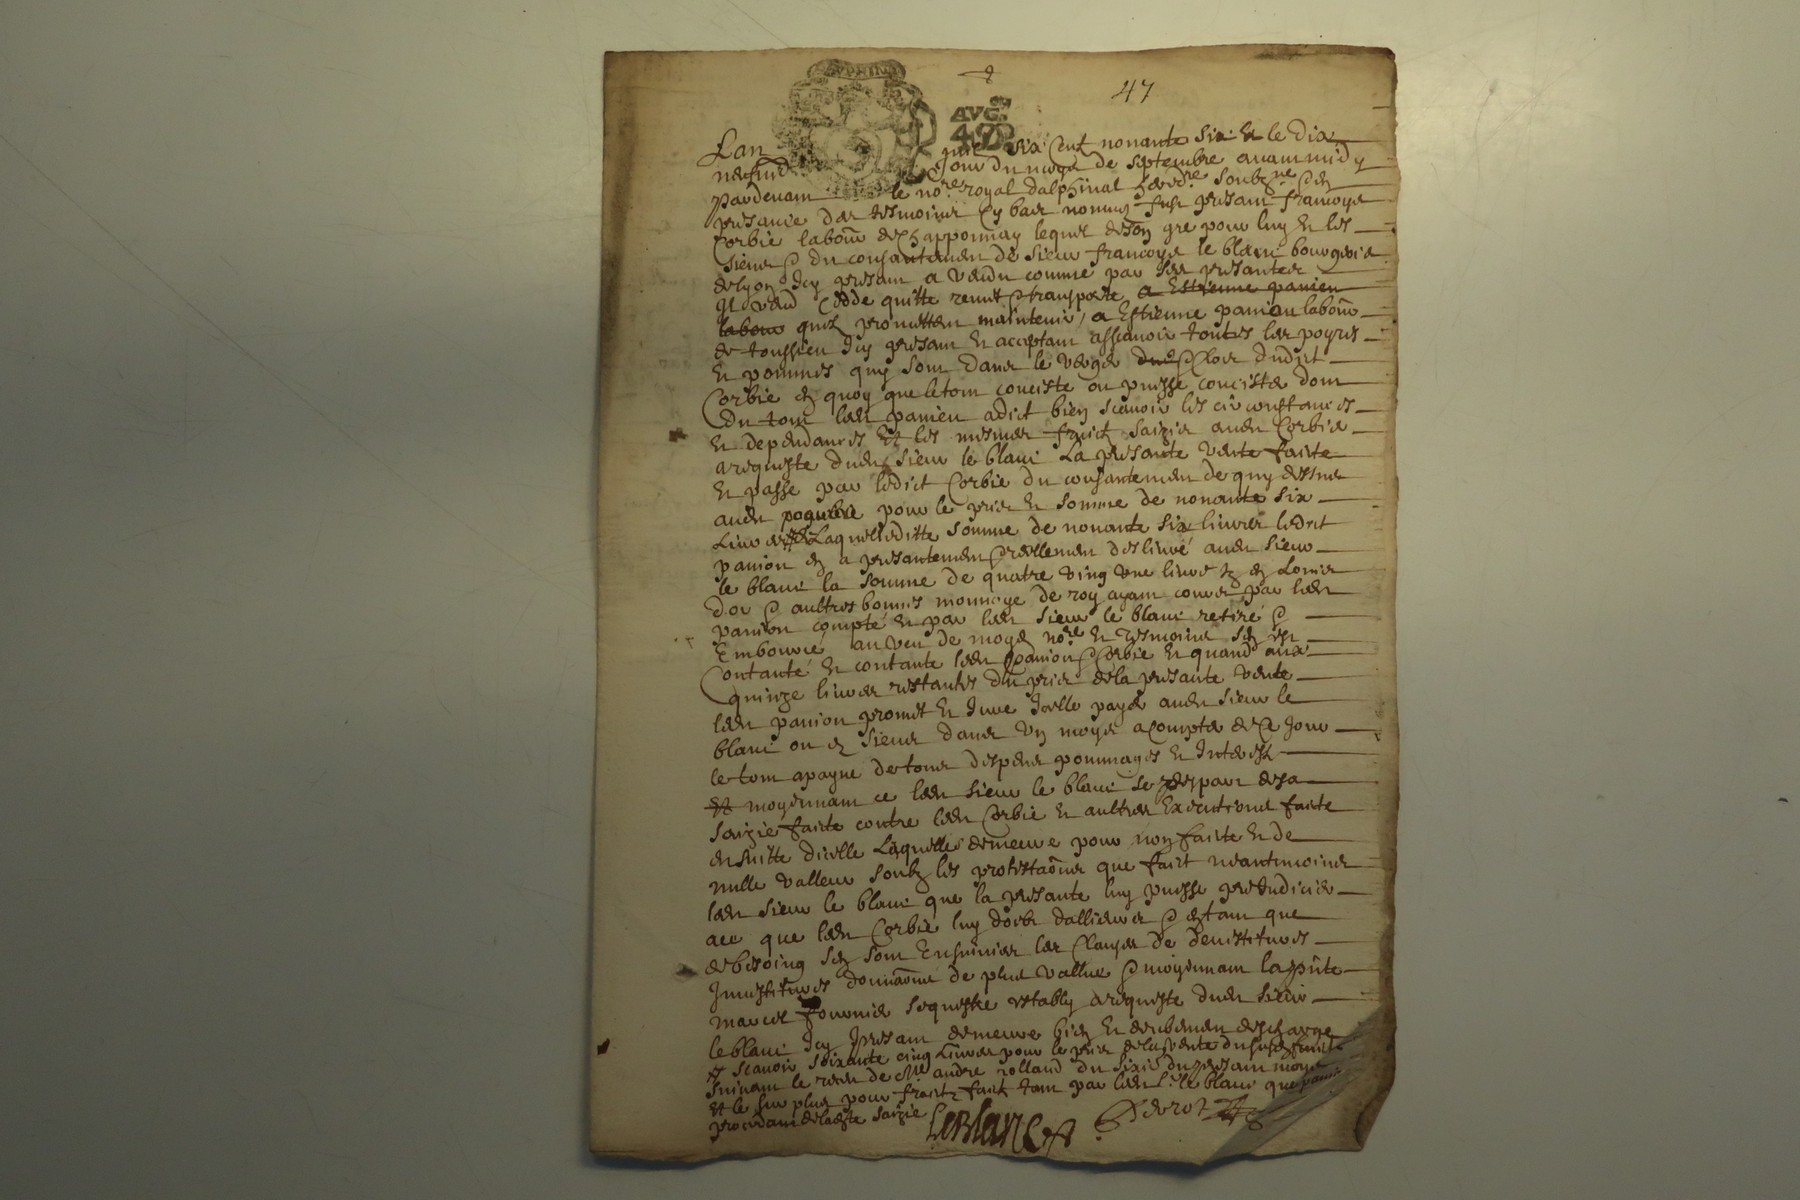 47
AVG.
48D
Lan mil six cent nonante six & le dix
neufvie jour du moys de septembre avant midy
pardevant le no.re royal dalphinal soubz.ne &
presance des tesmoins cy bas nommes fust present francoys
Corbie labour de Chapponnay lequel de son gre pour luy & les
siens & du consantement de sieur francoys le blanc bourgeois
de lyon Icy presant a vandu comme par ses presantes
Il vand Cedde quitte remet & transporte a Estienne panion
labour quil promettent maintenir a Estienne panion labour
de toussieu Icy presant & acceptant assavoir toutes les poyres
& pommes quy sont dans le verger Clos dudict
Corbie en quoy que le tout conciste ou puisse concister dont
du tout led panion a dict bien scavoir les circonstances
& dependances & les mesmes fruictz saizis aud Corbie
a requeste dud sieur le blanc La presante vente faicte
& passe par ledict Corbie du consantement de quy dessus
aud pour le prix & somme de nonante six
Livres Laquelleditte somme de nonante six livres ledict
panion en a presantement & reellement deslivré aud sieur
le blanc la somme de quatre vingt une livre en Louis
dor & aultres bonnes monnoye de roy ayant cours par led
panion compté & par led sieur le blanc retiré &
Embourcé au veu de moyd no.re & tesmoins sen est
Contanté & contante led panion & Corbie & quand aux
quinze livres restantes du prix de la presante vente
led panion promet & Jure Icelle payer aud sieur le
blanc ou es siens dans un moys a compter de ce jour
le tout a payne de tous despens dommages & Interestz
moyennant ce led sieur le blanc se despart de sa
saizie faicte contre led Corbie & aultres Executions faicte
ensuitte dicelle Laquelle demeure pour non faicte & de
nulle valleur soubz les protestaons que faict neantmoins
led sieur le blanc que la presante luy puisse prejudicier
que led Corbie luy doibt dallieurs & en tant que
de besoing sen sont Ensuivies les Clauses de devestitures
Investitures donnaons de plus vallue & moyennant la pnte
marcel fournier sequestre restably a requeste dud sieur
le blanc Icy presant demeure bien & deubement descharge
scavoir soixante cinq Livres pour le prix de la vente fruictz
suivant le de me andre rolland du six du presant moys
& le sur plus pour fraictz faict tant par led le blanc que panion
procedant de ladte saizie
LeBlanc